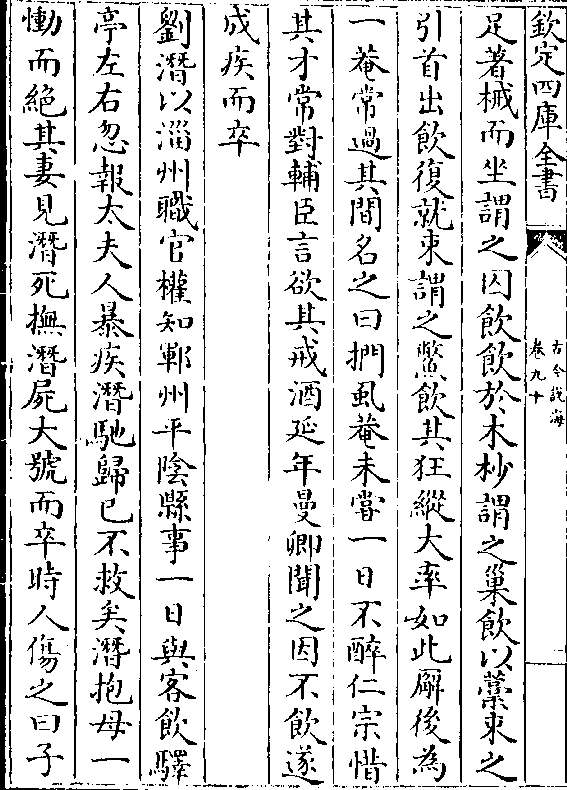 欽定四庫全書
古今説海
卷九十
足著械而坐謂之囚飲飲於木杪謂之巢飲以藁束之
引首出飲復就束謂之鱉飲其狂縱大率如此廨後為
一菴常過其間名之曰捫虱菴未嘗一日不醉仁宗惜
其才常對輔臣言欲其戒酒延年曼卿聞之因不飲遂
成疾而卒
劉潛以淄州職官權知鄆州平陰縣事一日與客飲驛
亭左右忽報太夫人暴疾潛馳歸已不救矣潛抱母一
慟而絕其妻見潛死撫潛屍大號而卒時人傷之曰子